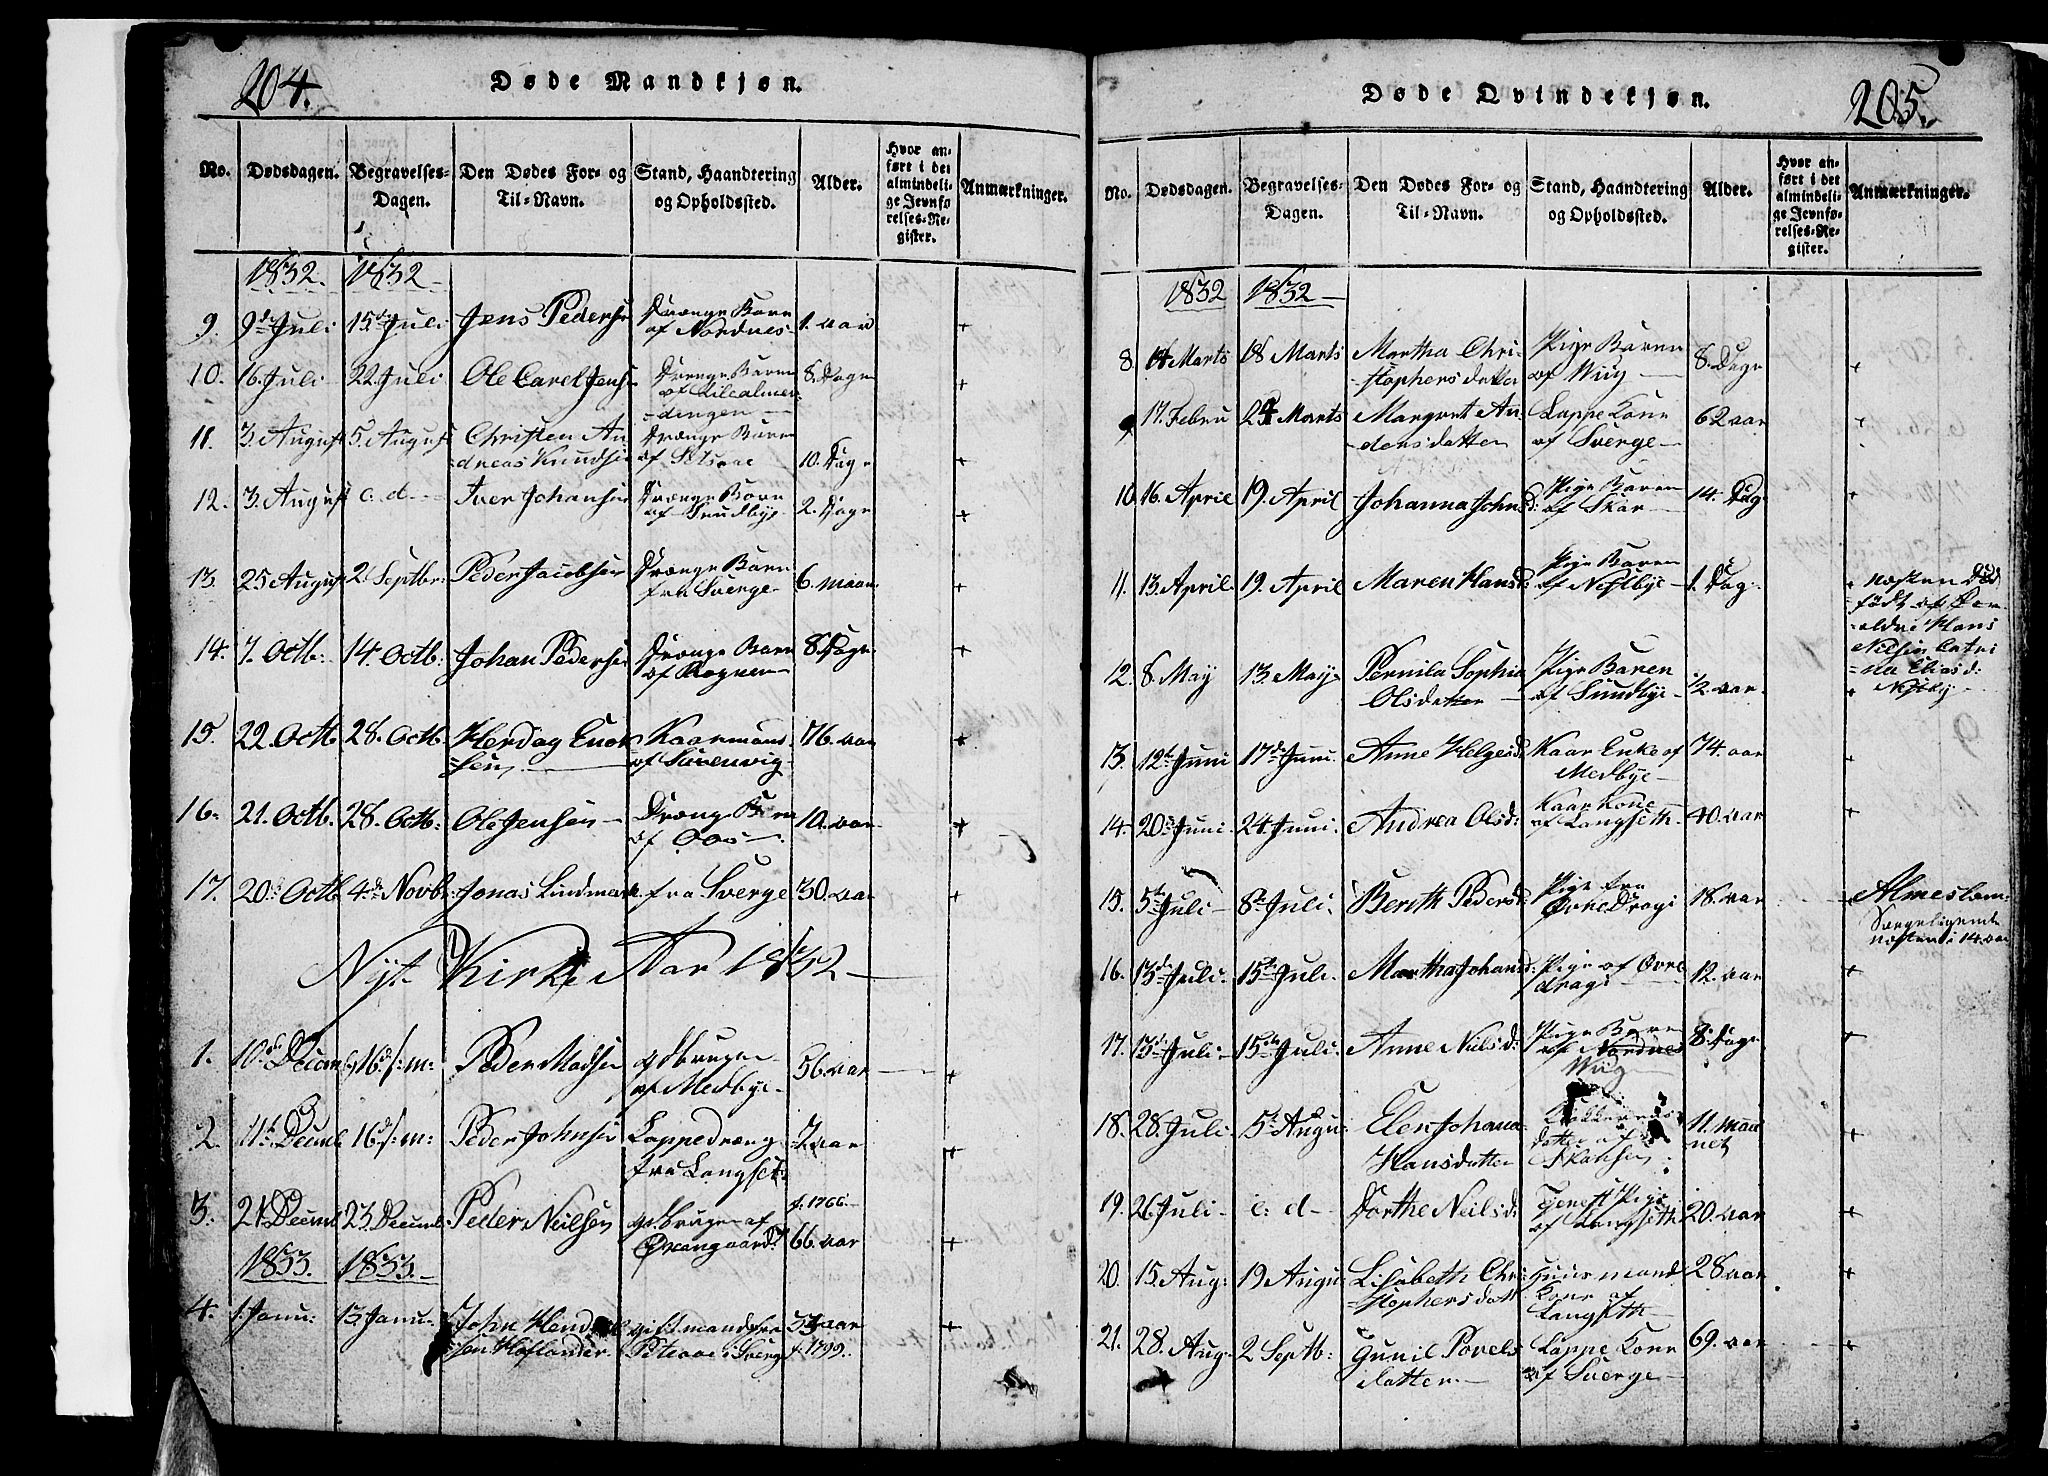 204.
Døde Mandkjøn.
No. Dødsdagen. Begravelses-Dagen. Den Dødes For- og Til-Navn. Stand, Haandtering og Opholdssted. Alder. Hvor anført i det almindelige Jevnførelses-Register. Anmærkninger.
1832. 1832
9. 9de Juli 15de Juli Jens Peders: Drænge Barn af Nordnes 1. aar +
10. 16. Juli 22. Juli Ole Carel Jens: Drænge Barn af 8. Dage +
11. 3. August 5. August Christen Andreas Knudsen Drænge Barn af 10. Dage +
12. 3. August e: d Iver Johansen Drænge Barn af Sundbye 2. Dage +
13. 25 August 2 Septbr: Peder Jacobsen Drænge Barn fra Sverge 6. maan +
14. 7. Octb: 14. Octb: Johan Pedersen Drænge Barn af Rognen 8. Dage +
15. 22. Octb 28. Octb. Herdag Enoksen Kaarmand af Surenvig 76. aar +
16. 21. Octb. 28. Octb: Ole Jensen Drænge Barn af 10. aar +
17. 20. Octb 4de Novb: Jonas Lindmark fra Sverge 30. aar +
Nyt Kirke Aar 1832
1. 10de Decemb 16de s: m: Peder Madsen gdbruger af Medbye 56. aar +
2. 11te Decmb 16d s: m: Peder Johnsen Lappedræng fra Langset 7 aar +
3. 21. Decmb 23. Decmb: Peder Neilsen gdbruger af f: 1766 66. aar +
1833. 1833.
4. 1. Janu: 13. Janu: John Hendriksen Høflander gift mand fra Piteaae i Sverge 33 aar f. 1799. +
205.
Døde Qvindekjøn.
No. Dødsdagen. Begravelses-Dagen. Den Dødes For- og Til-Navn. Stand, Haandtering og Opholdssted. Alder. Hvor anført i det almindelige Jevnførelses-Register. Anmærkninger.
1832 1832
8. 14 Marts 18 Marts Martha Christophersdatter Pige Baren af Wiig 8. Dage +
9 17. Febru 24 Marts Margret Andersdatter Lappe Kone af Sverge 62 aar +
10 16. April 19. April Johanna Johnsd: Pige Baren af Skar 14. Dag +
11. 13. April 19. April Maren Hansd: Pige Baren af Nestbye 1. Dag. næsten Død født af Forældre Hans Nilsen Catrina Eliasd: Nestby
12. 8. May 13. May Pernila Sophia Olsdatter Pige Baren af Sundbye 1/2 aar +
13. 12te Juni 17de Juni Anne Helgesd: Kaar Enke af Medbye 74. aar +
14. 20. Juni 24 Juni. Andrea Olsd: Kaar Kone af Langseth 40. aar +
15. 5te Juli 8de Juli. Bereth Pedersd Pige fra Øvre Dragi 18. aar Almeslem: Sengeligende næsten i 14. aar
16. 13de Juli. 15de Juli. Martha Johansd: Pige af Øvre dragi 12. aar +
17. 13de Juli 15de Juli. Anne Nielsd: Pige Barn af Nordnes Wiig 8. Dage +
18. 28. Juli 5te Augu: Elen Johana Hansdatter datter af Skansen 11. maanet +
19. 26 Juli e: d Dorthe Neilsd: Tjenest Pige af Langseth 20. aar +
20. 15. Aug: 19 Augu Lisabeth Christophersdatt Huusmand Kone af Langseth 28 aar +
21. 28. Aug. 2 Septb: Gunil Povelsdatter Lappe Kone af Sverge 69. aar +